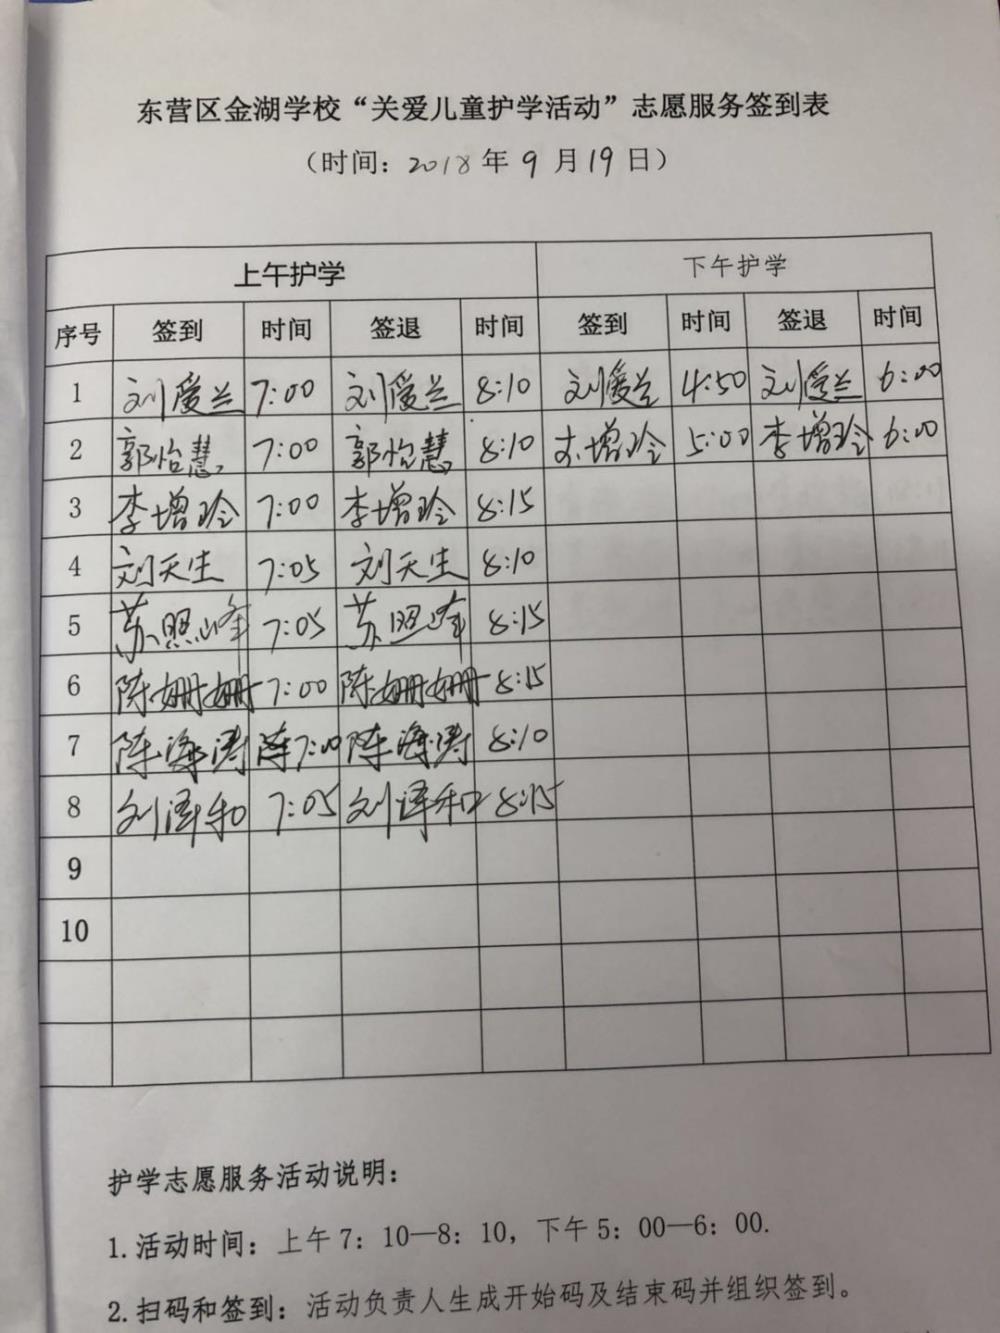 东营区金湖学校“关爱儿童护学活动”志愿服务签到表
（时间：2018年9月19日）
上午护学 下午护学
序号 签到 时间 签退 时间 签到 时间 签退 时间
1 刘爱兰 7:00 刘爱兰 8:10 刘爱兰 4:50 刘爱兰 6:00
2 郭怡慧 7:00 郭怡慧 8:10 李增玲 5:00 李增玲 6:00
3 李增玲 7:00 李增玲 8:15
4 刘天生 7:05 刘天生 8:10
5 苏照峰 7:05 苏照峰 8:15
6 陈姗姗 7:00 陈姗姗 8:15
7 陈海涛 陈7:00 陈海涛 8:10
8 刘泽和 7:05 刘泽和 8:15
9
10
护学志愿服务活动说明：
1.活动时间：上午7：10—8：10，下午5：00—6：00.
2.扫码和签到：活动负责人生成开始码及结束码并组织签到。